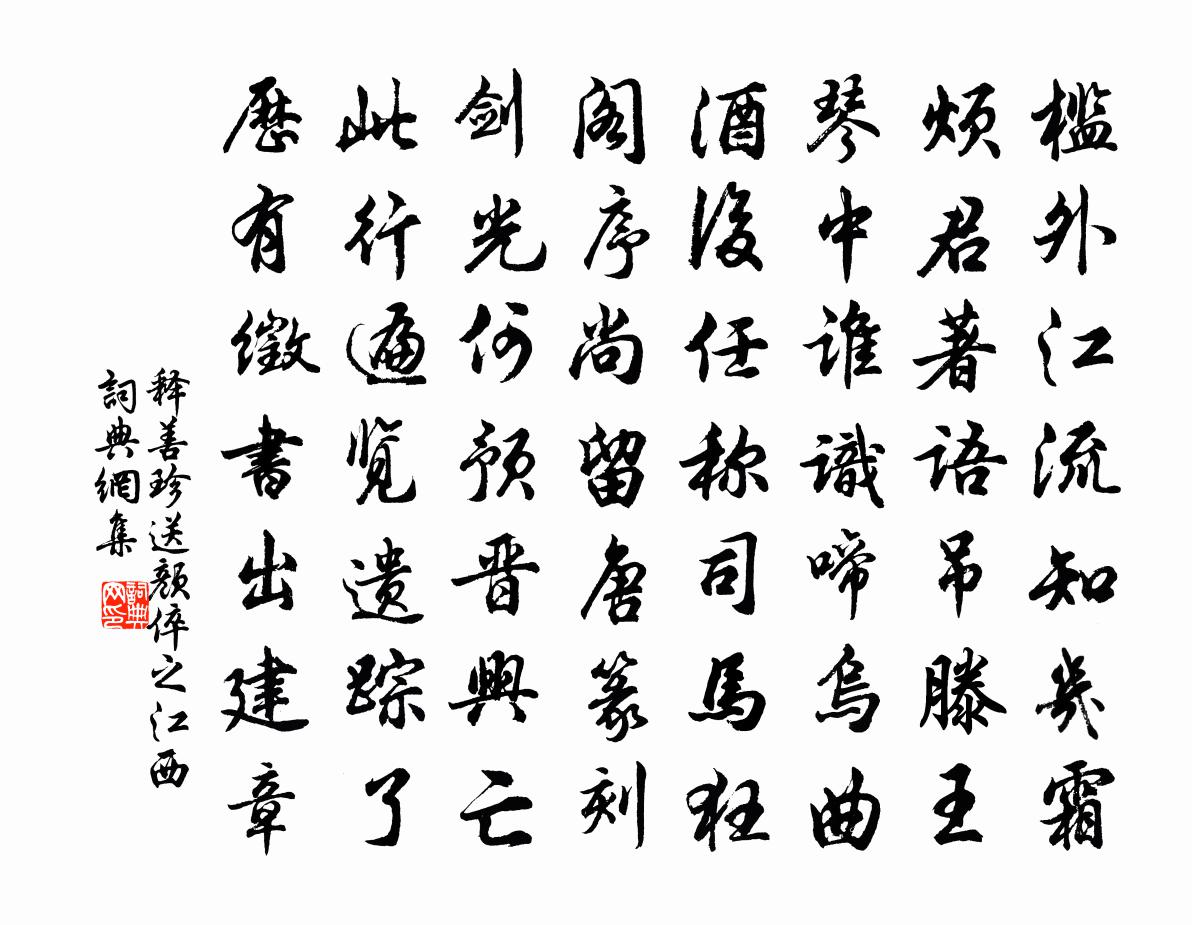 檻外江流知幾霜
煩君著語吊滕王
琴中誰識啼烏曲
酒後任称司馬狂
阁序尚留唐篆刻
剑光何预晋興亡
此行遍览遗踪了
歷有徵書出建章
释善珍送颜倅之江西
詞典網集
詞典网印